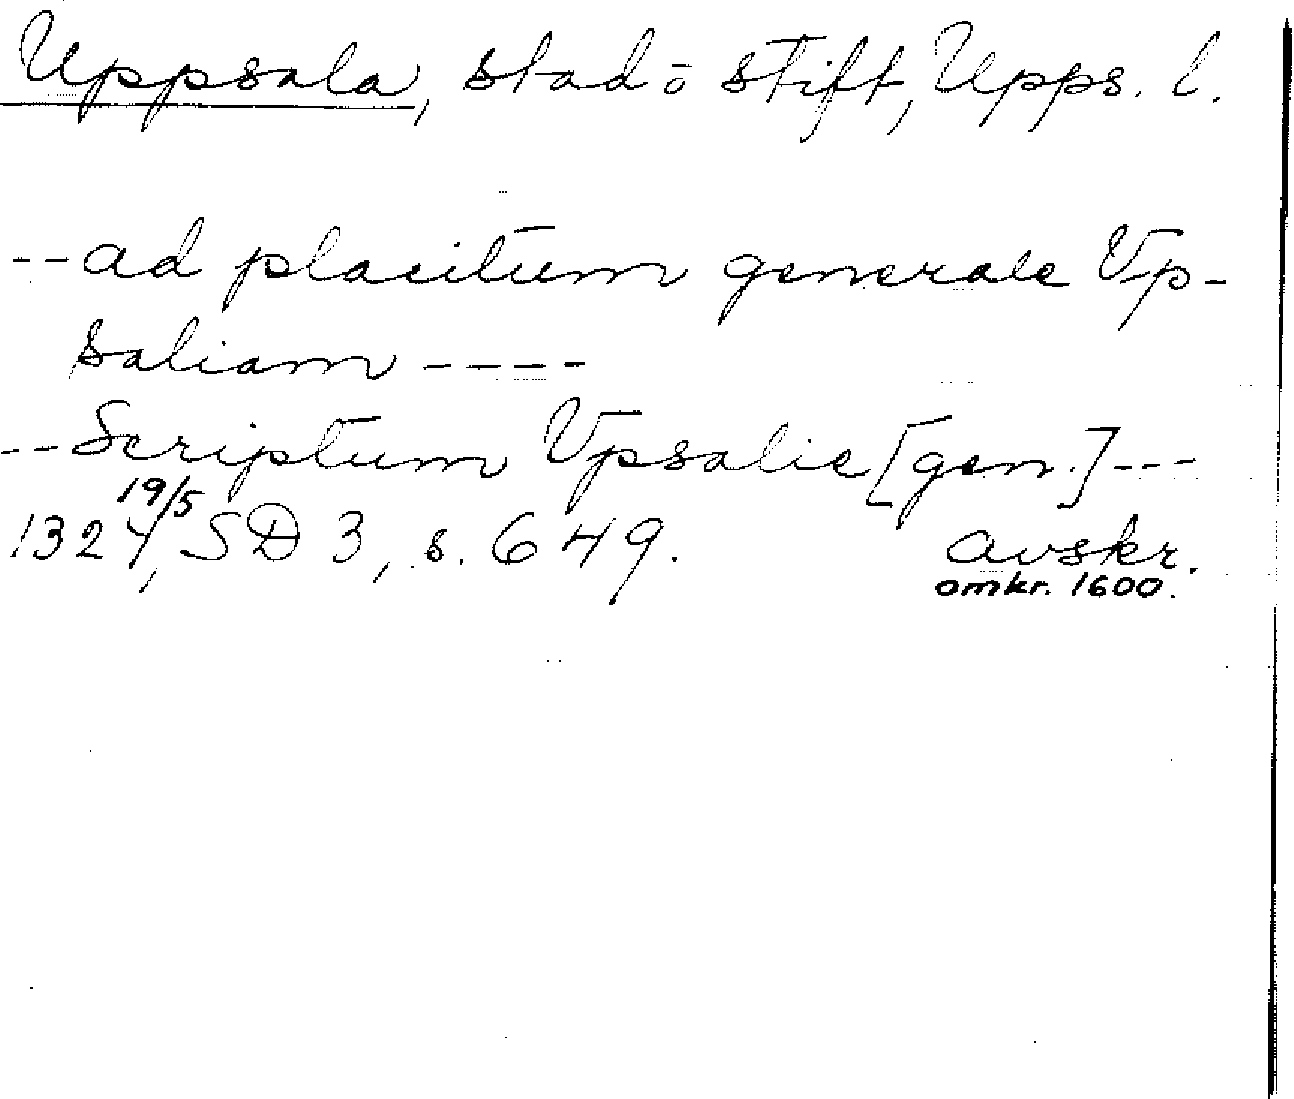 Uppsala, stad o stift, Upps. l.
--ad placitum generale Vp-
saliam ----
--Scriptum Vpsalie [gen.] ---
19/5
1324, SD 3, s. 649. avskr.
omkr. 1600.